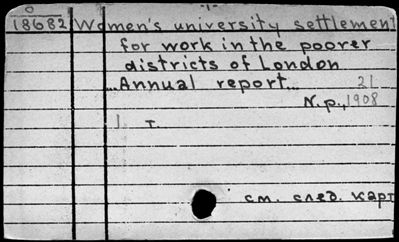 -1-
18682 Women's university settlement
for work in the poorer
districts of London
...Annual report... 21
N.p., 1908
1. т.
см. след. карт